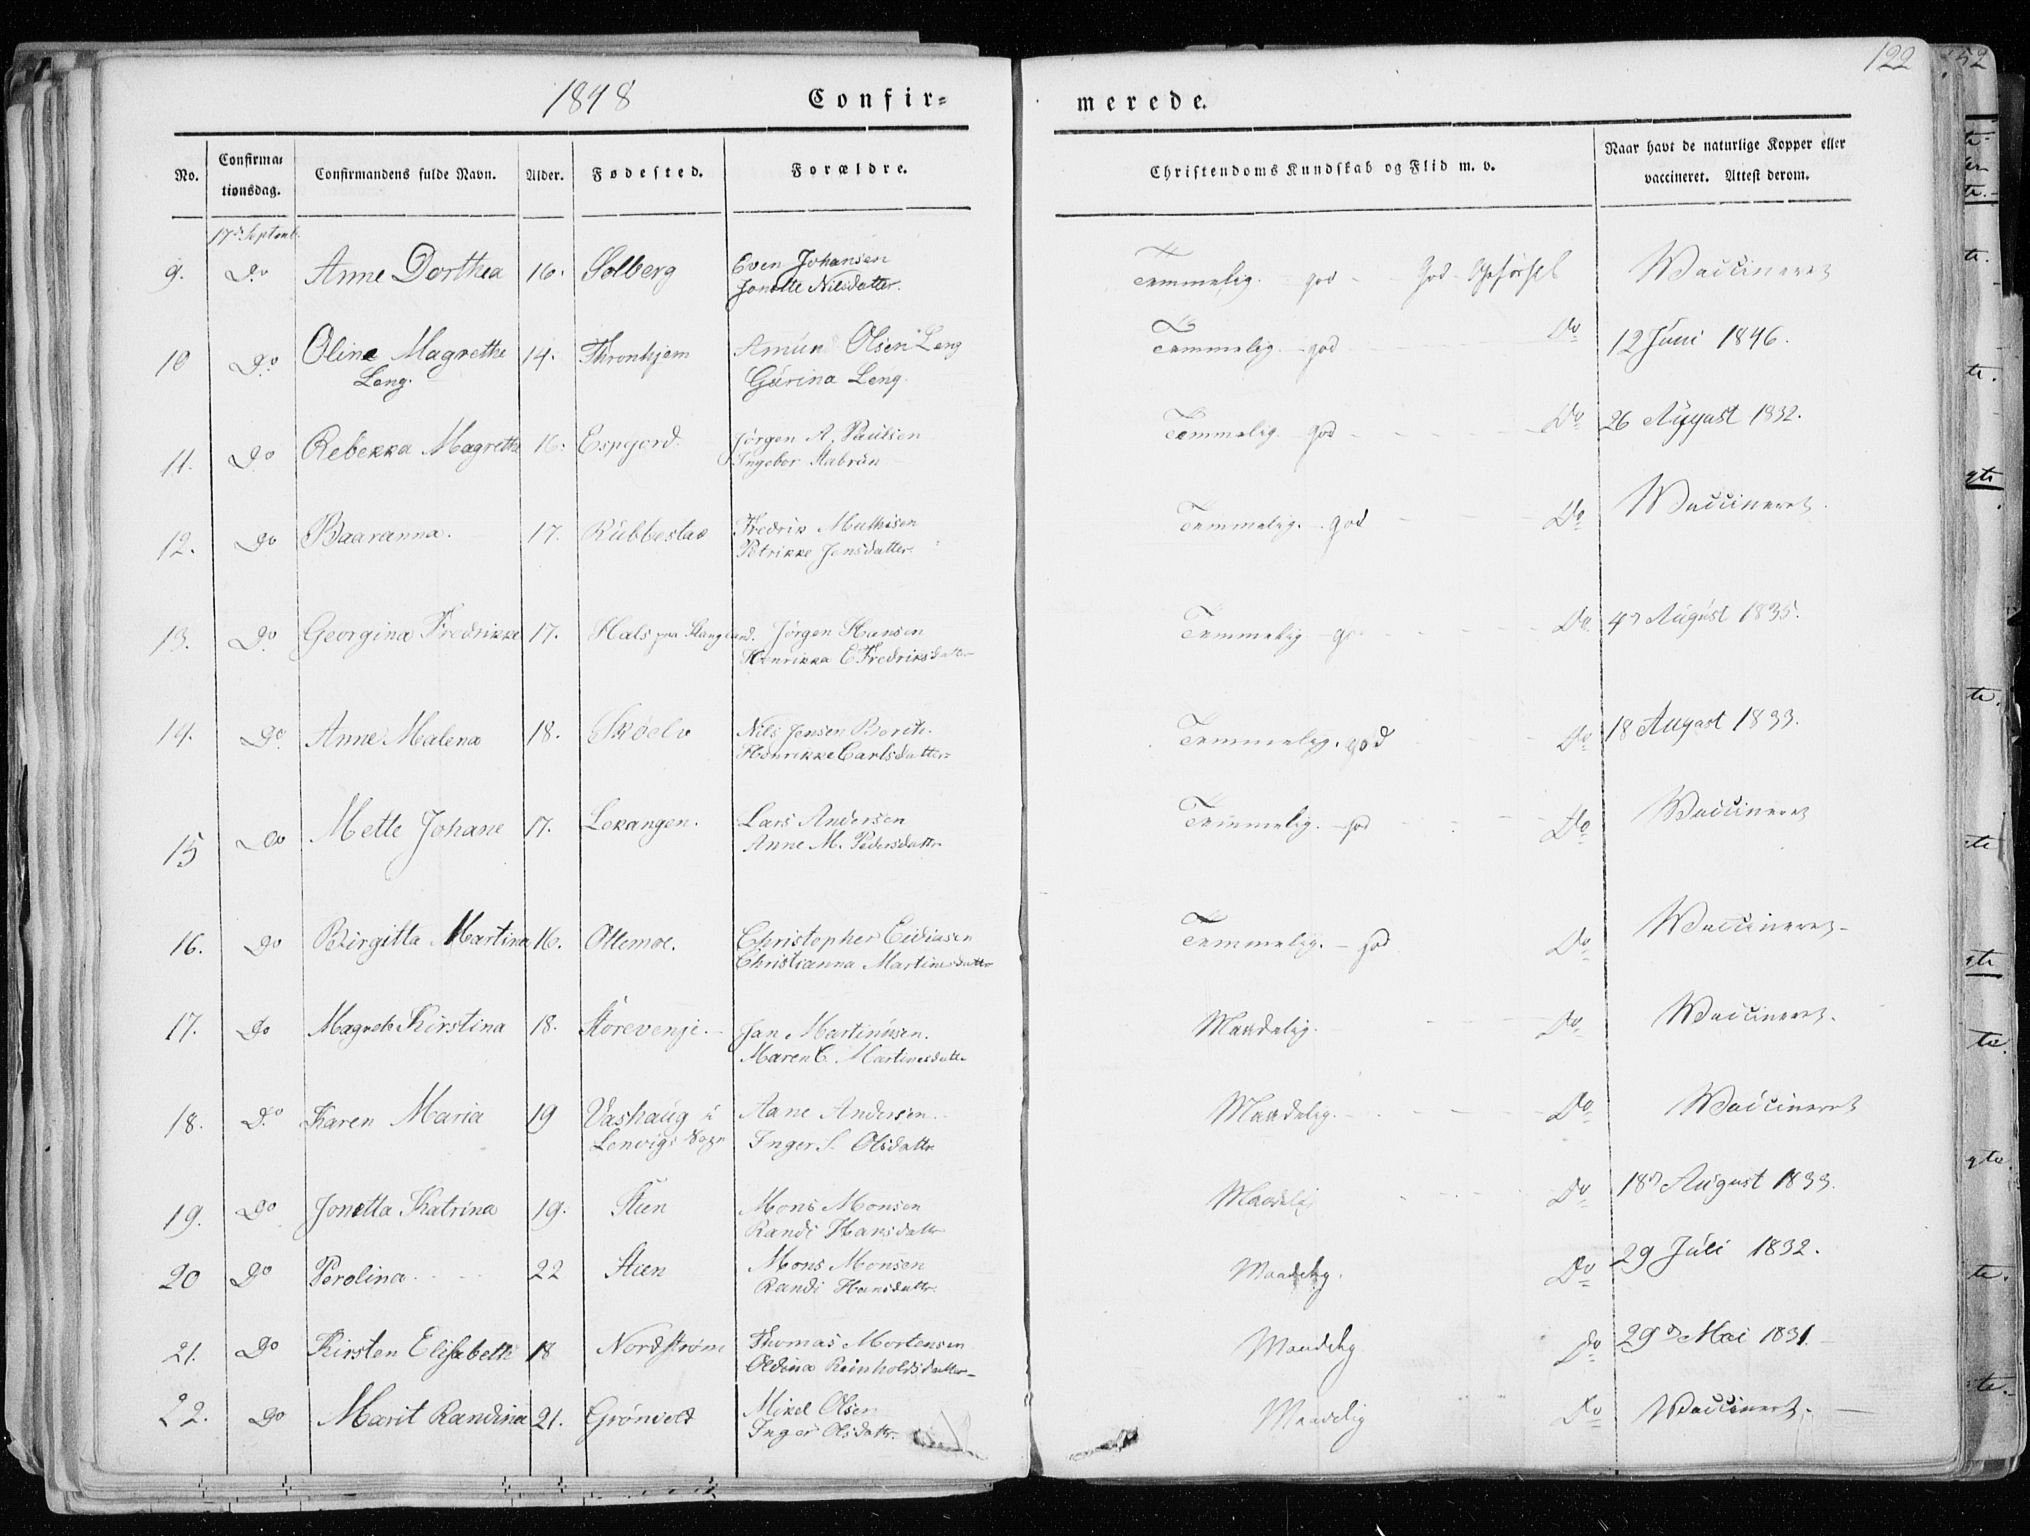 1848 Confir= merede. 122
No. Confirma= tionsdag. Confirmandens fulde Navn. Alder. Fødested. Forældre. Christendoms Kundskab og Flid m. v. Naar havt de naturlige Kopper eller vaccineret. Attest derom.
17d Septemb.
9. Do Anne Dorthea 16. Solberg Even Johansen Temmelig god God Opførsel Vaccineret
Jonette Nilsdatter.
10 Do Oline Magrethe 14. Thronhjem Amun Olsen Leng Temmelig god Do 12 Juni 1846.
Leng. Gurina Leng.
11. Do Rebekka Magretha 16. Espejord. Jørgen A. Paulsen Temmelig god Do 26 August 1832.
Ingebor
12. Do Baaranna. 17. Rubbestad Fredrik Mathisen Temmelig god Do Vaccineret.
Petrikke Jensdatter.
13. Do Georgina Fredrikke 17. Hals paa Stangland. Jørgen Hansen Temmelig Do 4d August 1835.
Henrikka C. Fredriksdatter
14. Do Anne Malena 18. Skøelv Nils Jensen Temmelig. god Do 18 August 1833.
Henrikke Carlsdatter
15 Do Mette Johane 17. Lekangen. Lars Andersen Temmelig. god Do Vaccineret
Anne M. Pedersdattr
16. Do Birgitta Martina 16. Ottemoe. Christopher Eidiasen Temmelig. god Do Vaccineret
Christianna Martinusdattr
17. Do Magrete Kirstina 18. Storevenje. Jan Martinusen. Maadelig. Do Vaccineret.
Maren C. Martinusdattr
18. Do Karen Maria 19 Vashaug i Aane Andersen. Maadelig. Do Vaccineret
Lenvigs Sogn Inger S. Olsdattr
19. Do Jonetta Katrina 19. Steen Mons Monsen Maadelig Do 18d August 1833.
Randi Hansdattr
20 Do Perolina 22 Steen Mons Monsen Maadelig. Do 29 Juli 1832.
Randi Hansdattr.
21. Do Kirsten Elisabeth 18 Nordstrøm Thomas Mortensen Maadelig Do 29d Mai 1831.
Oldina Reinholdsdatter
22. Do Marit Randina 21. Grønvold Mikel Olsen Maadelig Do Vaccineret.
Inger Olsdattr.